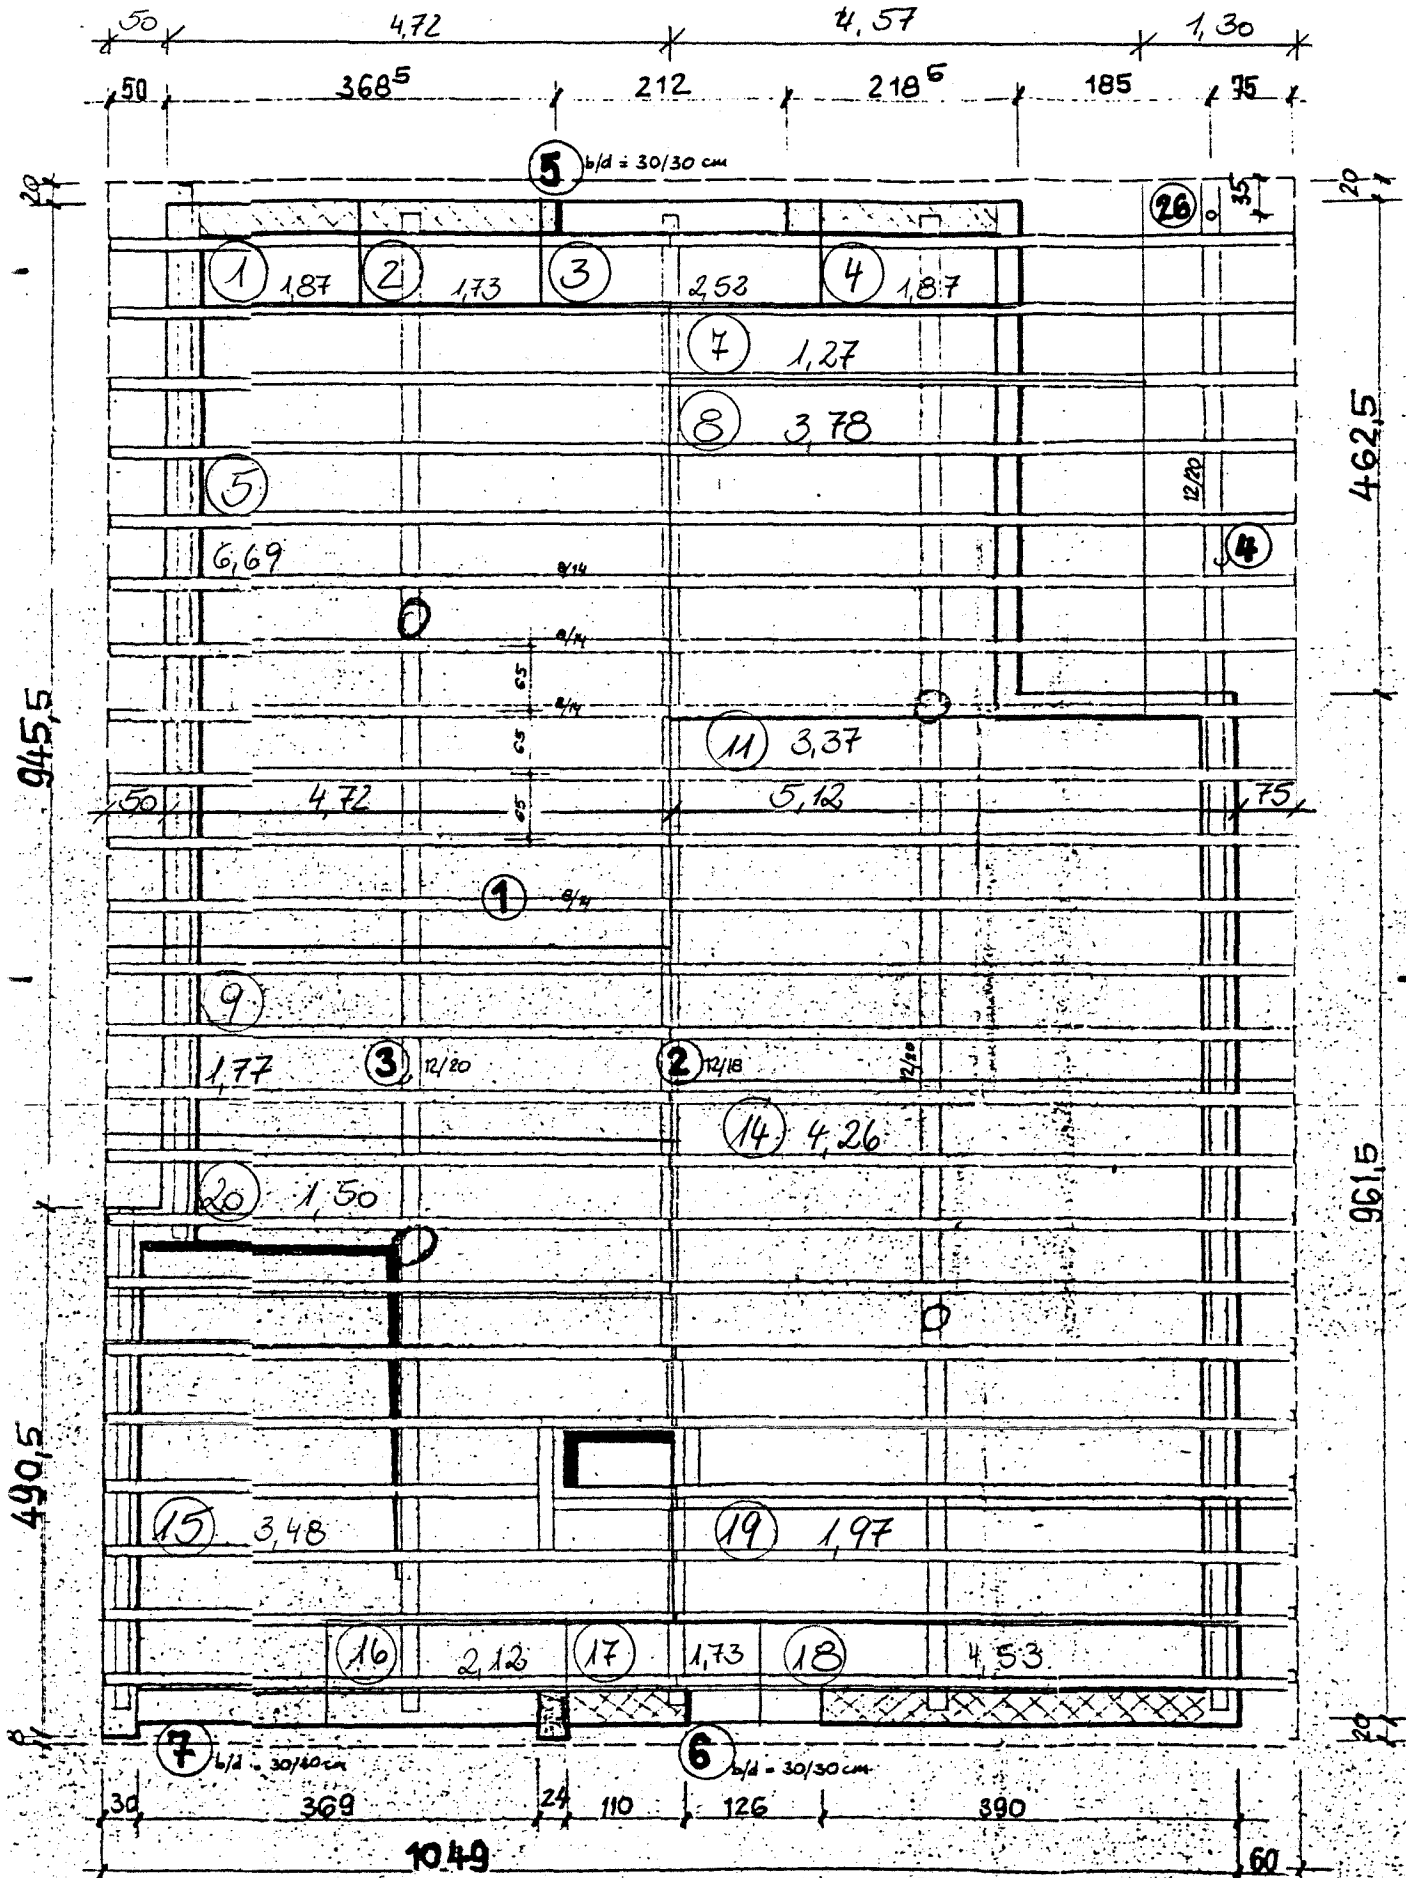 50 4,72 4,57 1,30
50 368⁵ 212 218⁵ 185 75
5 b/d = 30/30 cm
20 26 35 20
1 1,87 2 1,73 3 2,52 4 1,87
7 1,27
8 3,78
462,5
5
12/20
6,69 8/14 4
8/14
65
8/14
945,5
11 3,37
65
50 4,72 65 5,12 75
1 8/14
9
1,77 3 12/20 2 12/18 12/20
14 4,26
20 1,50
961,5
490,5
15 3,48 19 1,97
16 2,12 17 1,73 18 4,53
20
7 b/d = 30/40 cm 6 b/d = 30/30 cm
30 369 24 110 126 390
1049 60